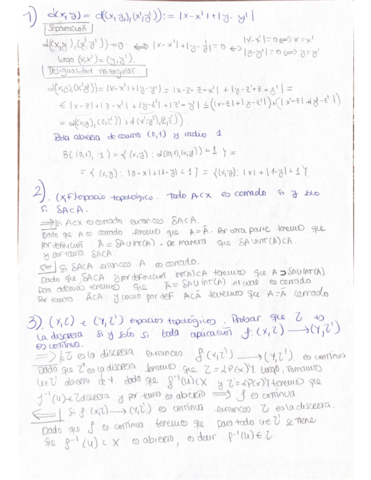 1) d(x,y) = d((x,y),(x',y')) := |x-x'|+|y-y'|
Separación
d((x,y),(x',y'))=0 ⟺ |x-x'|+|y-y'|=0 ⟺ |x-x'|=0 ⟺ x=x'
|y-y'|=0 ⟺ y=y'
luego (x,x') = (y,y').
Desigualdad triangular
d((x,y),(x',y')) = |x-x'|+|y-y'| = |x-z+z-x'|+|y-z'+z'-y'| =
≤ |x-z|+|z-x'|+|y-z'|+|z'-y'| ≤ (|x-z|+|y-z'|)+(|x'-z|+|y'-z'|)
= d((x,y),(z,z')) + d((x',y'),(z,z')).
Bola abierta de centro (0,1) y radio 1
B((0,1), 1) = {(x,y): d((0,1),(x,y))<1} =
= {(x,y): |0-x|+|1-y|<1} = {(x,y): |x|+|1-y|<1}
2) (X,τ) espacio topológico. Todo A⊂X es cerrado si y sólo
si δA⊂A.
⟹ A⊂X es cerrado entonces δA⊂A.
Dado que A es cerrado tenemos que A=Ā. Por otra parte tenemos que
por definición Ā = δA∪int(A). De manera que δA∪int(A)⊂A
y por tanto δA⊂A
⟸ δA⊂A entonces A es cerrado.
Dado que δA⊂A y por definición int(A)⊂A tenemos que A⊃δA∪int(A)
Pero además tenemos que Ā = δA∪int(A) el cual es cerrado
Por tanto Ā⊂A, y como por def A⊂Ā tenemos que A=Ā cerrado
3) (X,τ) e (Y,τ') espacios topológicos. Probar que τ es
la discreta si y sólo si toda aplicación f:(X,τ)→(Y,τ')
es continua.
⟹ τ es la discreta entonces f:(X,τ)→(Y,τ') es continua
Dado que τ es la discreta tenemos que τ=P(X). Luego, tomamos
U∈τ' abierto de Y dado que f⁻¹(U)⊂X y τ=P(X) tenemos que
f⁻¹(U)∈τ discreta y por tanto es abierto ⟹ f es continua
⟸ Si f:(X,τ)→(Y,τ') es continua entonces τ es la discreta.
Dado que f es continua tenemos que para todo U∈τ' se tiene
que f⁻¹(U)⊂X es abierto, es decir f⁻¹(U)∈τ